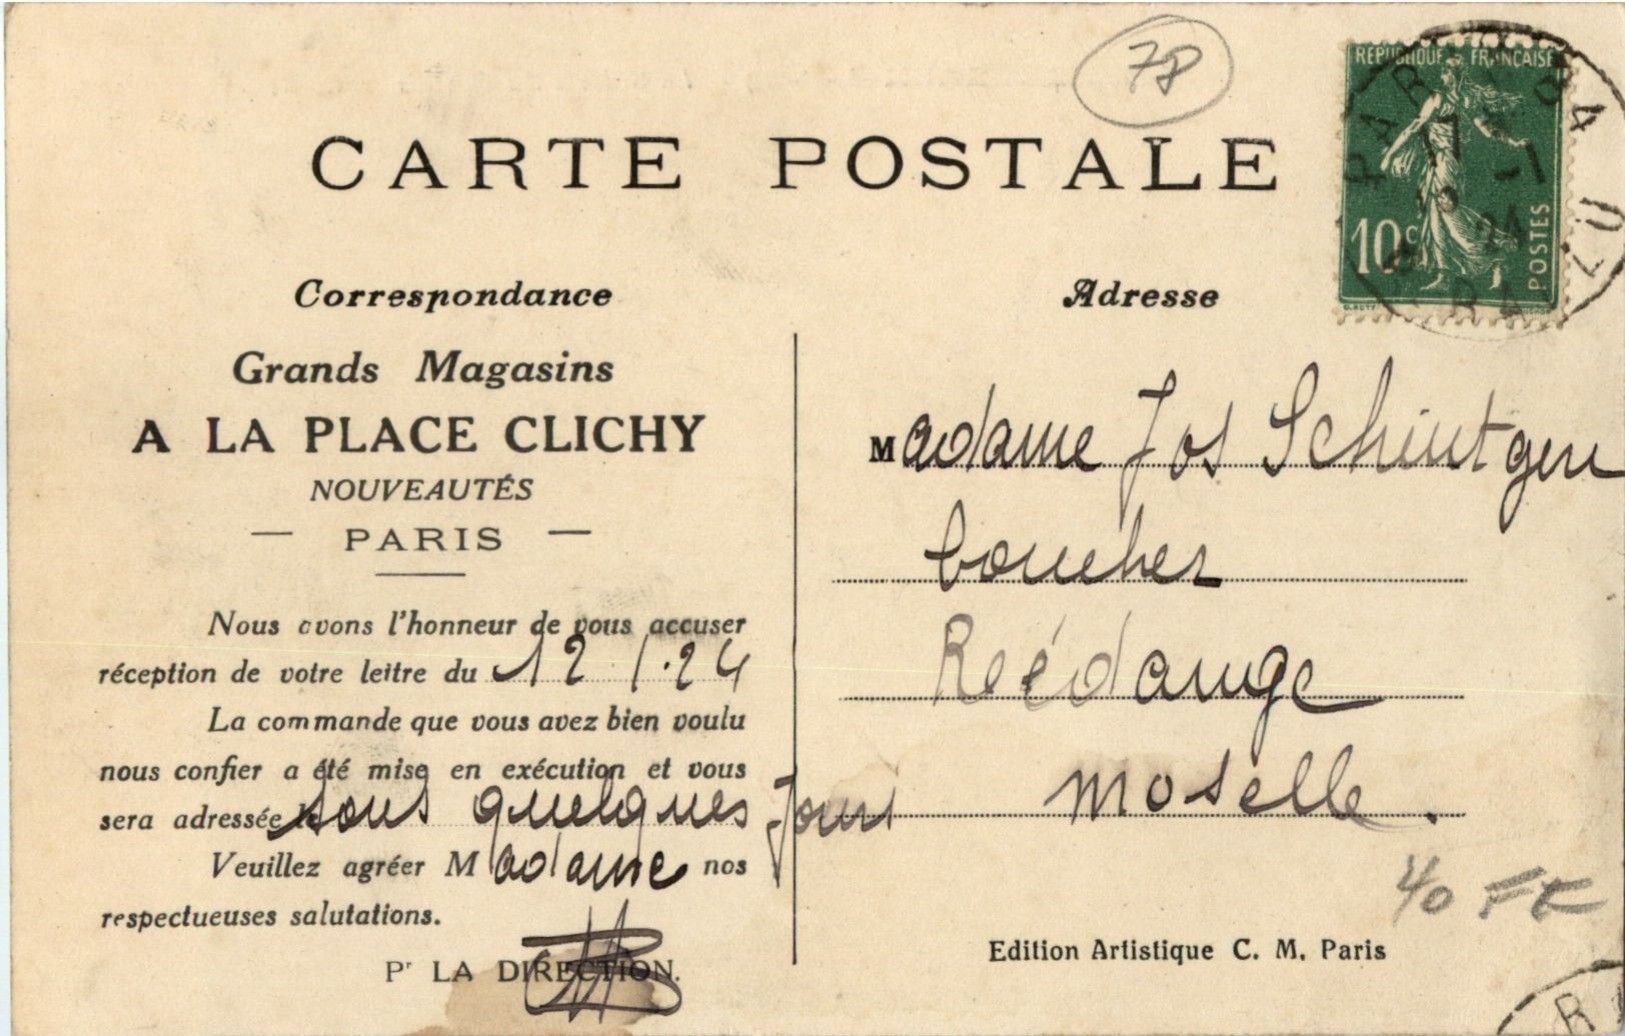 78
RÉPUBLIQUE FRANÇAISE
10c
POSTES
CARTE POSTALE
Correspondance
Grands Magasins
A LA PLACE CLICHY
NOUVEAUTÉS
— PARIS —
Nous avons l'honneur de vous accuser
réception de votre lettre du 12.1.24
La commande que vous avez bien voulu
nous confier a été mise en exécution et vous
sera adressée sous quelques jours
Veuillez agréer Madame nos
respectueuses salutations.
Pr LA DIRECTION.
Adresse
Madame Jos Schintgen
boucher
Reédange
Moselle.
40 FF
Edition Artistique C. M. Paris